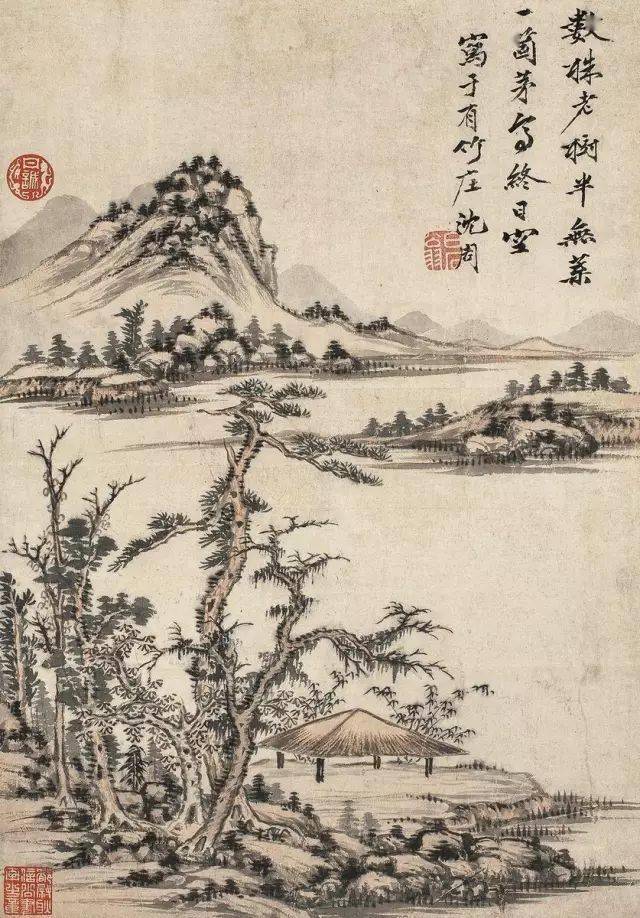 数株老樹半無葉
一箇茅亭終日空
寫于有竹庄沈周